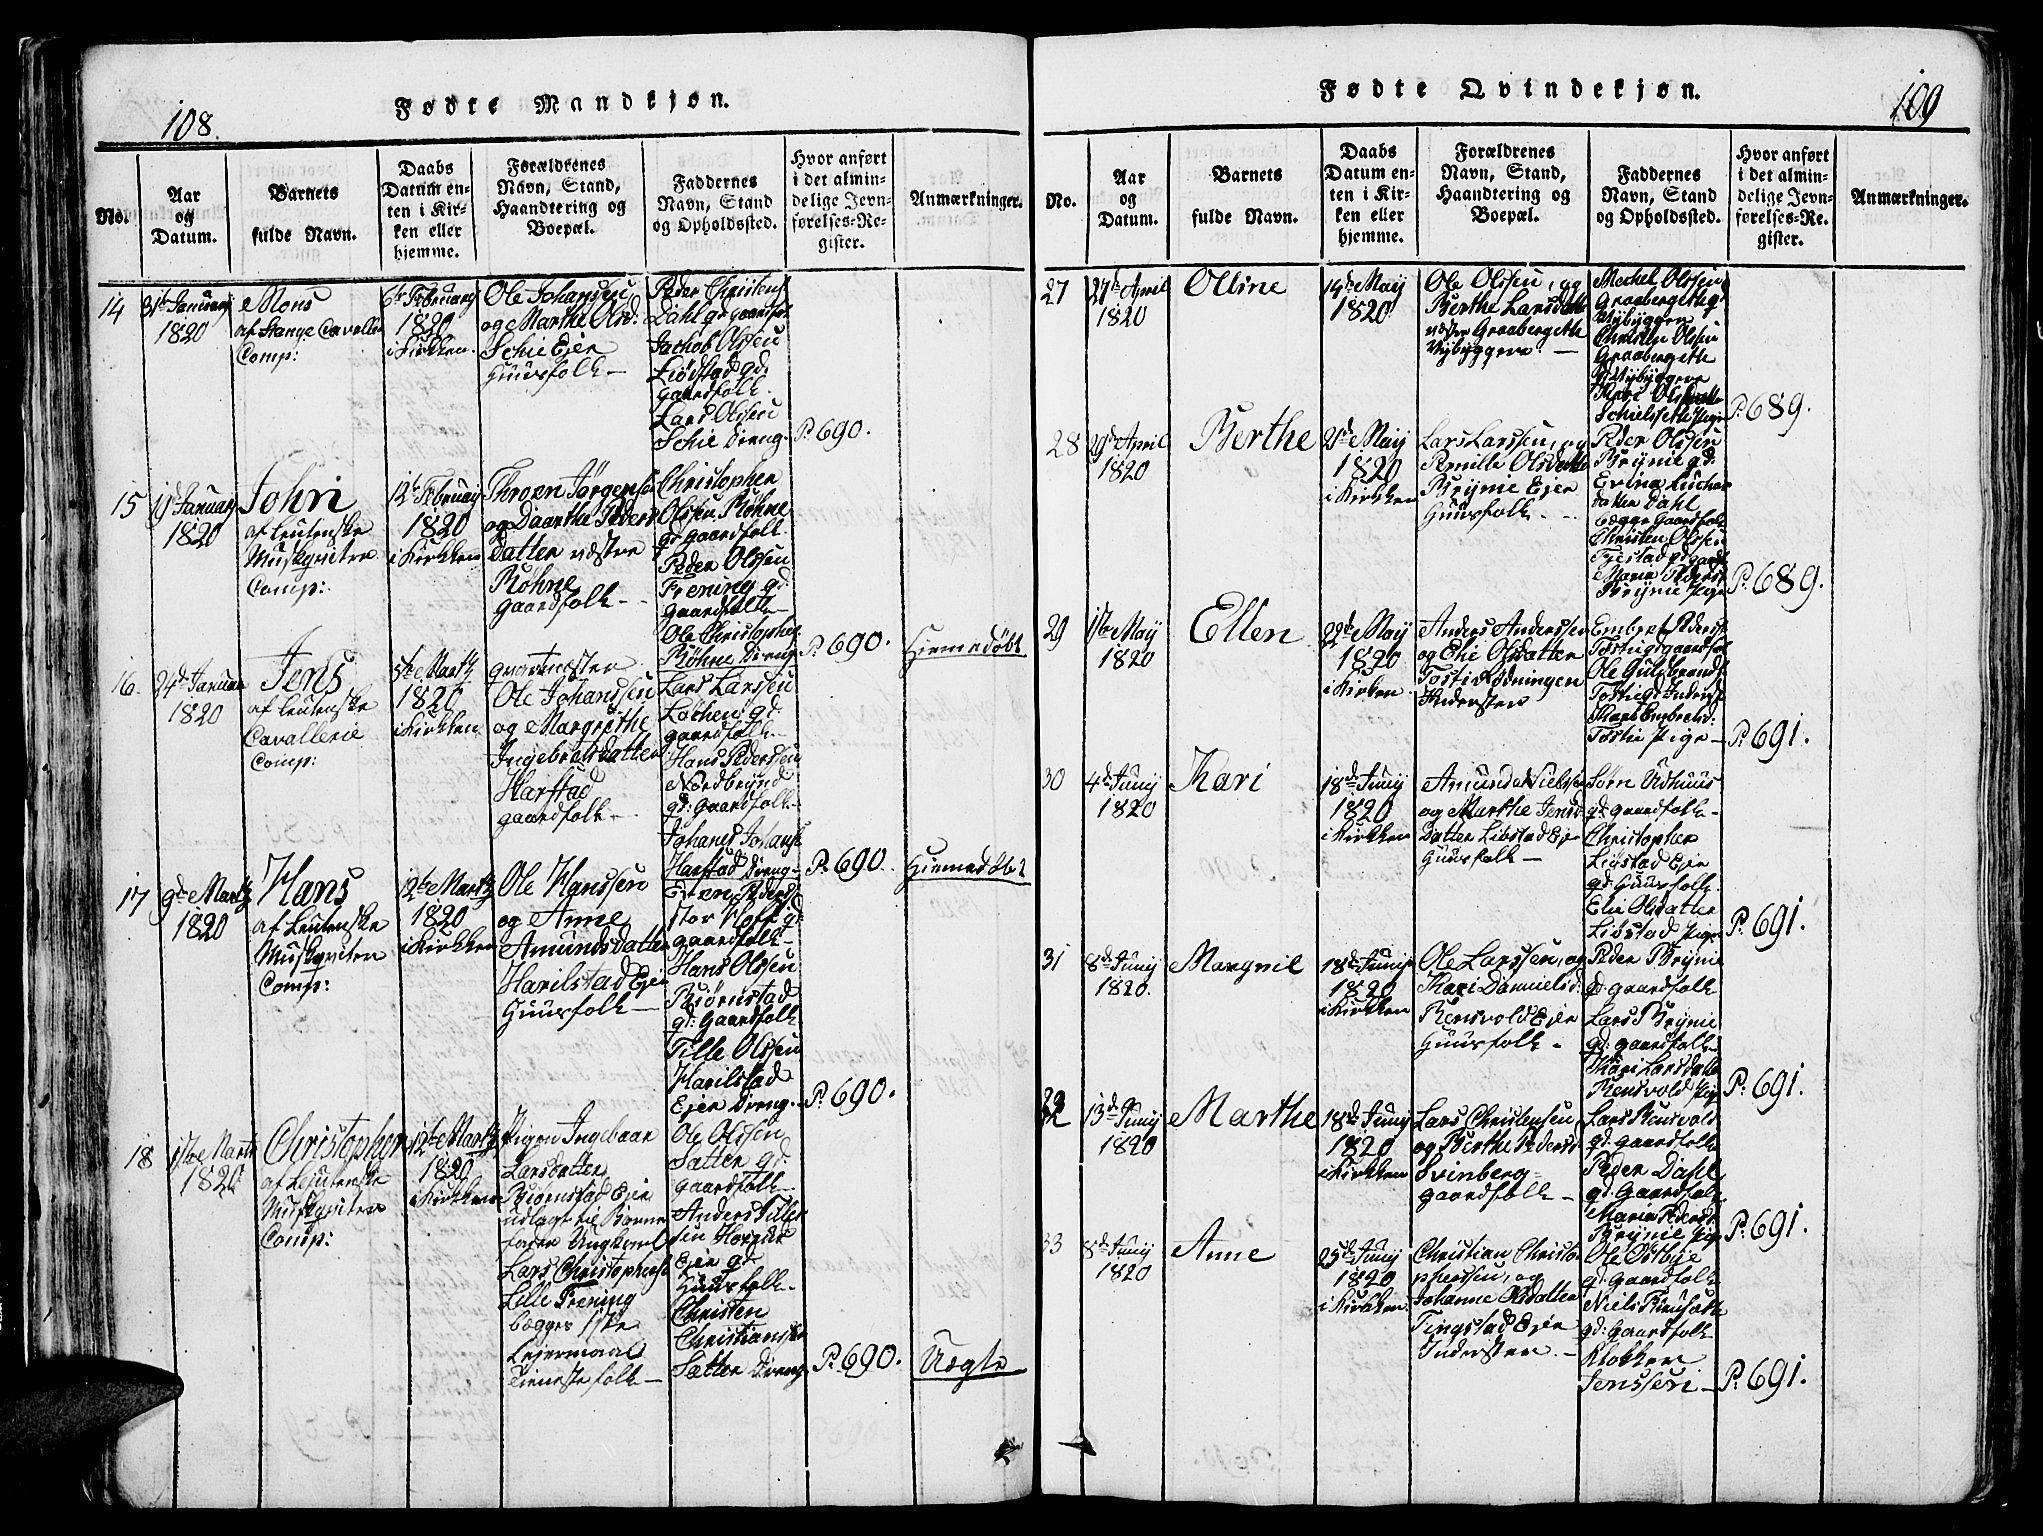 108.
Fødte Mandkjøn.
No.
Aar
og
Datum.
Barnets
fulde Navn.
Daabs
Datum en-
ten i Kir-
ken eller
hjemme.
Forældrenes
Navn, Stand,
Haandtering og
Boepæl.
Faddernes
Navn, Stand
og Opholdssted.
Hvor anført
i det almin-
delige Jevn-
førelses-Re-
gister.
Anmærkninger.
14
31te Januarij
1820
Mons
af Stange Cavalleri
Comp:
6te Februarij
1820
i Kirken.
Ole Johansen
og Marthe Olsd:
Schie Ejer
Huusfolk –
Peder Christens
Dahl gd gaardfolk
Jachob Olssen
Liødstad gd:
gaardfolk.
Lars Olssen
Schie Dreng.
P. 690.
15
19d Januar
1820
John
af Leutenske
Muskqviteer
Comp:
12te Februarij
1820
i Kirkken
Throen Jørgens
og Daarthe Peders
datter vestre
Røhne
gaardfolk –
Christopher
Olsen Røhne
gd gaardfolk.
Peder Olssen
Frening gd
gaardfolk –
Ole Christopher
Røhne Dreng
P. 690.
Hiemedøbt
16.
24d Januar
1820
Jens
af Leutenske
Cavallerie
Comp:
5te Martz
1820
i Kirkken
qvartmester
Ole Johanssen
og Margrethe
Ingebretsdatter
Harstad
gaardfolk –
Lars Larssen
Lochen gd.
gaardfolk –
Hans Pederssen
Nordbrynd
gd: Gaardfolk –
Johanes Johans
Harstad Dreng –
P. 690.
Hiemedøbt
17
9de Martz
1820
Hans
af Leutenske
Muskqviteer
Comp:
12te Martz
1820
i Kirkken
Ole Hanssen
og Anne
Amundsdatter
Harilstad Ejer
Huusfolk –
Even Peders
stor Hoff gd
gaardfolk –
Hans Olssen
Biørnstad
gd: Gaardfolk
Tille Olssen
Harilstad
Ejer Dreng.
P. 690.
18
1ste Martz
1820
Christopher
af Leutenske
Muskqviteer
Comp:
12te Martz
1820
i Kirkken
Pigen Ingebaar
Larsdatter
Biørnstad Ejer
udlagt til Barne
fader Ungkarl
Lars Christophersen
Lille Frening
begges 1ste
Lejermaal
Tieneste folk –
Ole Olssen
Sætter gd:
gaardfolk –
Anders Tiller
Ejer gd.
Huusfolk –
Christen
Christiansen
Sætter Dreng
P. 690.
Uægte
109
Fødte Qvindekjøn.
No.
Aar
og
Datum.
Barnets
fulde Navn.
Daabs
Datum en-
ten i Kir-
ken eller
hjemme.
Forældrenes
Navn, Stand,
Haandtering og
Boepæl.
Faddernes
Navn, Stand
og Opholdssted.
Hvor anført
i det almin-
delige Jevn-
førelses-Re-
gister.
Anmærkninger.
27
27de April
1820
Olline
14de Maij
1820
Ole Olssen, og
Berthe Larsdatter
vestre Graabergeth
Nybyggere. –
Mechel Olssen
Graabergeth gd
Nybyggere
Christen Olssen
Graabergeth
gd Nybyggere
Kari Olsdatter
Schielseth Pige
P. 689.
28
29de April
1820
Berthe
21de Maij
1820
i Kirkken
Lars Larssen, og
Pernille Olsdatter
Brynie Ejer
Huusfolk –
Peder Olssen
Brynie gd:
datter Dahl
begge Gaardfolk
Christen Olssen
Tiestad gd gaardf
Maria Pedersd
Brynie Pige
P. 689.
29
1ste Maij
1820
Ellen
22de Maij
1820
i Kirken
Anders Anderssen
og Elie Olsdatter
Inderster
Embret Peders
Tostig gaardfolk
Ole Guldbrands
Kari Embretsd:
Tostie Pige –
P. 691.
30
4de Junij
1820
Kari
18de Junij
1820
i Kirkken
Amund Nielssen
og Marthe Jens
datter Libstad Ejer
Huusfolk –
Sørn Udhuus
gd: gaardfolk –
Christopher
Liøstad Ejer
gd. Huusfolk –
Elie Olsdatter
Liøstad Pige
P. 691.
31
8de Junij
1820.
Margnil
18de Junij
1820
i Kirkken
Ole Larssen, og
Kari Danielsd:
Rensvold Ejer
Huusfolk –
Peder Brynie
gd: gaardfolk –
Lars Brynie
gd: gaardfolk –
Kari Larsdatter
Rensvold Pige
P. 691.
32
13de Junij
1820
Marthe
18de Junij
1820
i Kirkken
Lars Christensen,
og Berthe Pedersd
Svinberg –
gaardfolk –
Lars Rensvold
gd: gaardfolk –
Peder Dahl
gd. Gaardfolk
Maria Pedersd.
Brynie Pige
P. 691.
33
8de Junij
1820
Anne
25de Junij
1820
i Kirkken
Christian Christo
pherssen, og
Johanne Olsdatter
Tingstad Ejer
Inderster. –
Ole Østbye
gd: Gaardfolk
gd: Gaardfolk
Klokker
Jenssen –
P. 691.